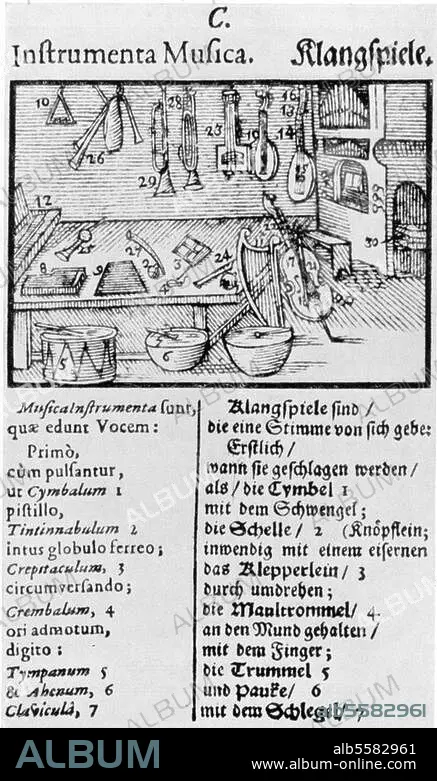 C.
Inſtrumenta Muſica. Klangſpiele.
10
28
16
13
23
19
14
26
29
12
25
24
8
9
5
6
30
Muſica Inſtrumenta ſunt,
quæ edunt Vocem:
Primò,
cùm pulſantur,
ut Cymbalum 1
piſtillo,
Tintinnabulum 2
intus globulo ferreo;
Crepitaculum, 3
circumverſando;
Crembalum, 4
ori admotum,
digito:
Tympanum 5
& Ahenum, 6
Claviculâ, 7
Klangſpiele ſind /
die eine Stimme von ſich gebē:
Erſtlich /
wann ſie geſchlagen werden /
als / die Cymbel 1
mit dem Schwengel;
die Schelle / 2 (Knöpflein;
inwendig mit einem eiſernen
das Klepperlein / 3
durch umdrehen;
die Maultrommel / 4.
an den Mund gehalten /
mit dem Finger;
die Trummel 5
und Pauke / 6
mit dem Schlegel / 7
alb5582961
ALBUM
alb5582961
www.album-online.com